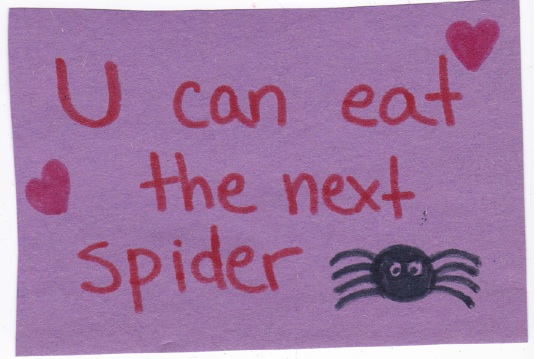 U can eat
the next
spider